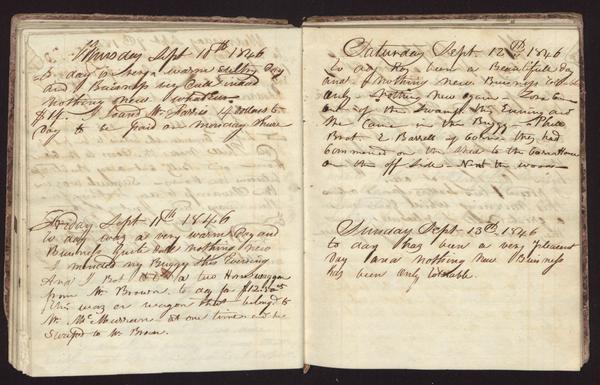 Thursday Sept 10th 1846
To day is very warm sultry Day
and Buisness very Quite indeed
Nothing new whatever
$14. I Loand Mr Farris 14 dollars to
day to be paid on Monday
Friday Sept 11th 1846
to day was a very warm day an
Buisness Quit dull nothing new
I mended my Buggy this Evening
And I a two Horse waggon
from Mr Brown to day for $12.
This was on wagon that belong'd to
Mr McMurran at one time and he
Swap'd to Mr Brown
Saturday Sept 12th 1846
to day Has been a Beautifull day
and nothing new Buisness
Only Father new again
out of the Swamp this Evening and
He Came in the Buggy
Brot 2 Barrells of they had
Commenced on the shed to the
on the off Side Next the woods
Sunday Sept 13th 1846
to day has been a very pleasent
Day and nothing new Buisness
has been Only tolerable